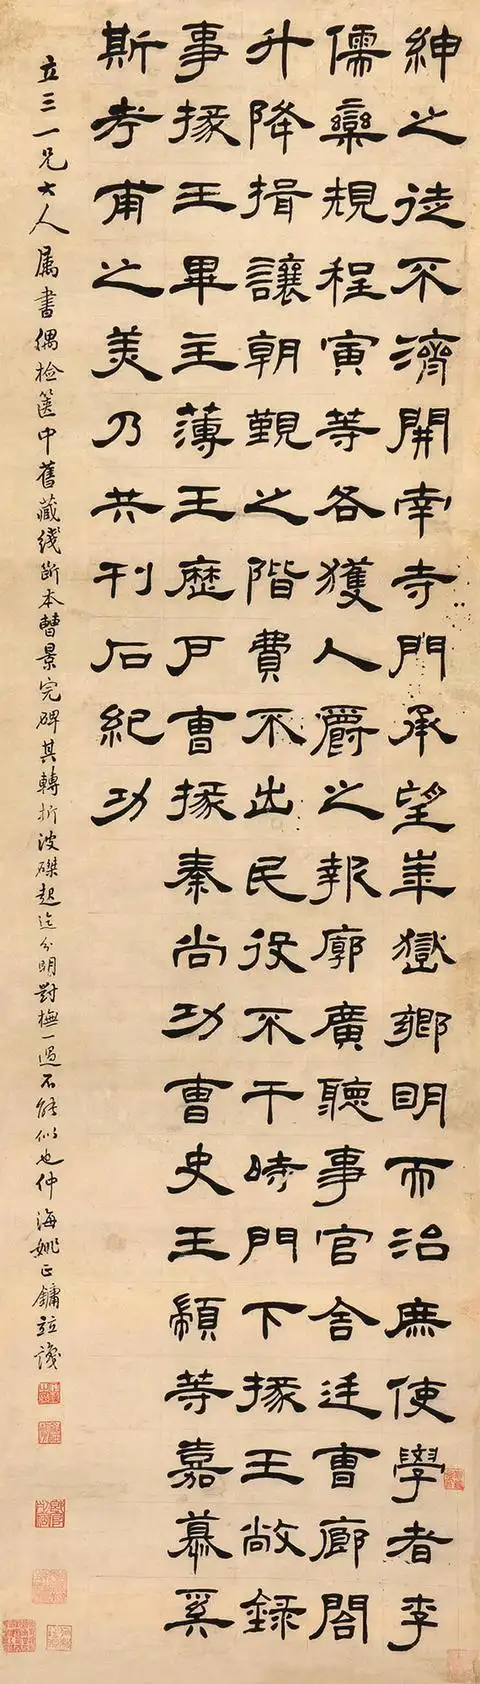 紳之徒不濟開南寺門承望崋嶽鄉明而治庶使學者李
儒欒規程寅等各獲人爵之報廓廣聽事官舍廷曹廊閣
升降揖讓朝覲之階費不出民役不干時門下掾王敞録
事掾王畢主薄王歷戶曹掾秦尚功曹史王顓等嘉慕奚
斯考甫之美乃共刊石紀功
立三一兄大人属書偶檢篋中舊藏綫斷本曹景完碑其轉折波磔起迄分明對橅一過不能似也仲海姚正鏞並識